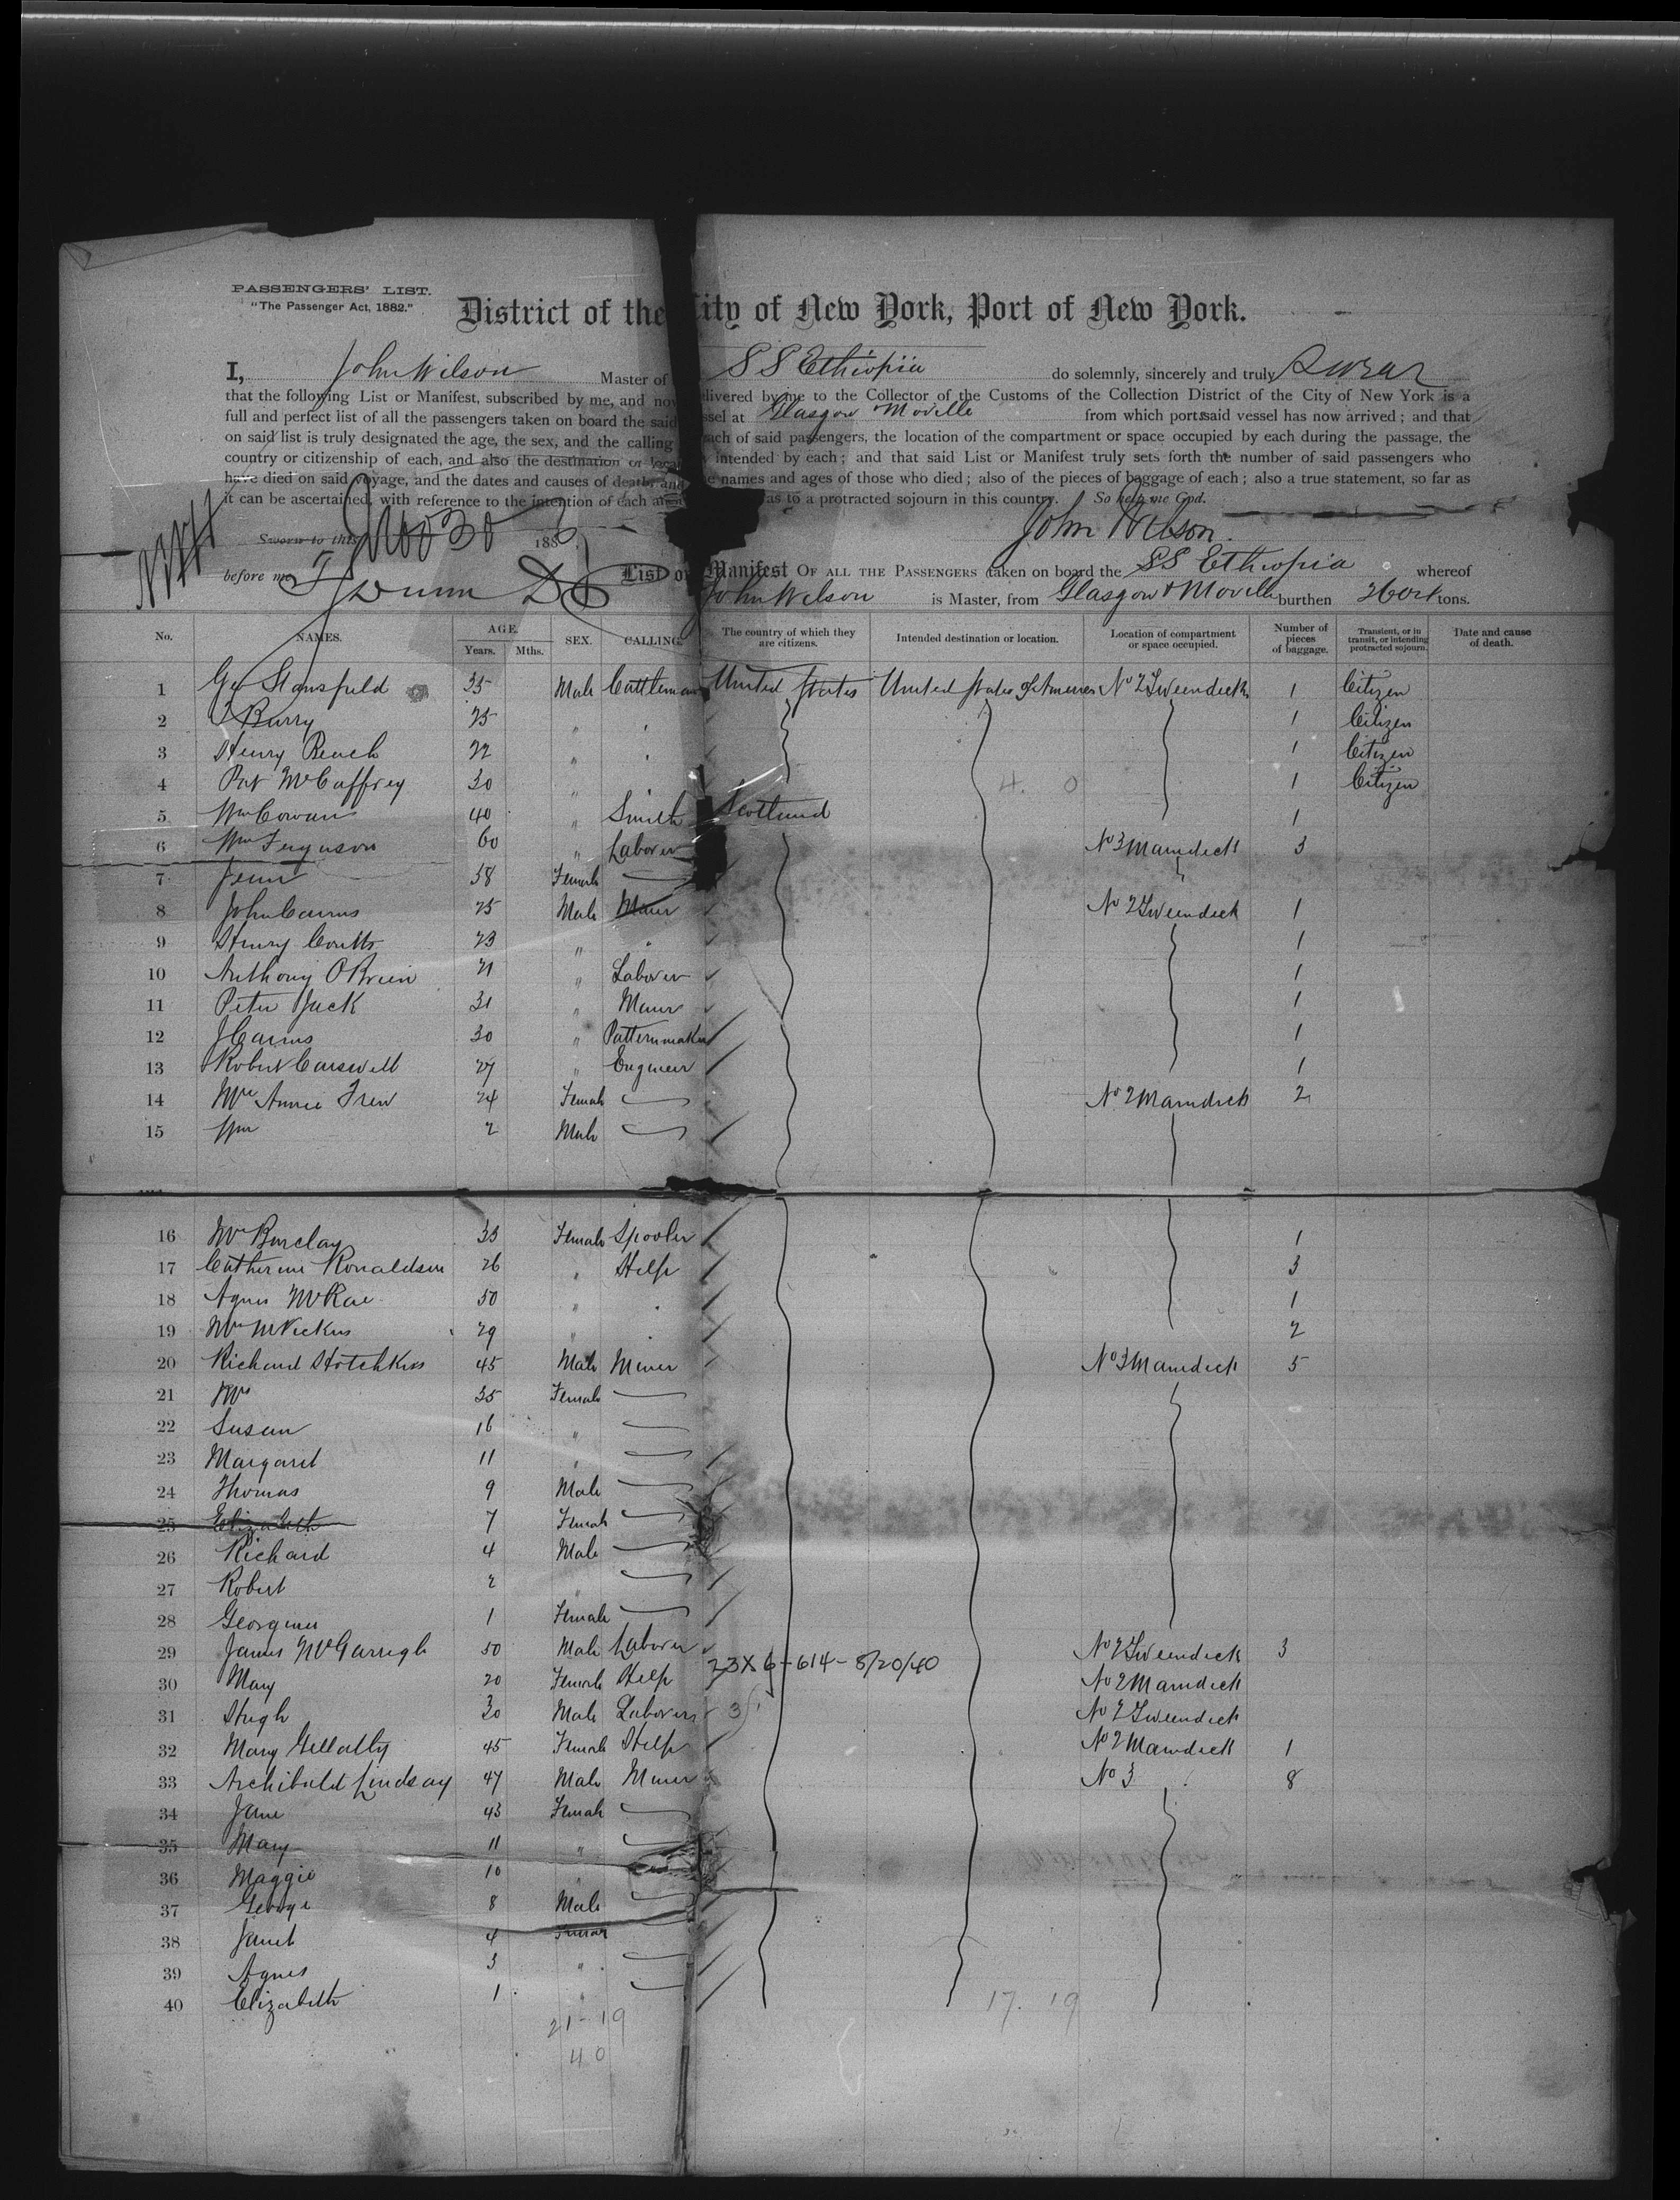 PASSENGERS' LIST.
"The Passenger Act, 1882."
District of the City of New York, Port of New York.
I, John Wilson Master of SS Ethiopia do solemnly, sincerely and truly Swear
that the following List or Manifest, subscribed by me, and now delivered by me to the Collector of the Customs of the Collection District of the City of New York is a
full and perfect list of all the passengers taken on board the said vessel at Glasgow Moville from which port said vessel has now arrived; and that
on said list is truly designated the age, the sex, and the calling each of said passengers, the location of the compartment or space occupied by each during the passage, the
country or citizenship of each, and also the destination or intended by each; and that said List or Manifest truly sets forth the number of said passengers who
have died on said voyage, and the dates and causes of death, and names and ages of those who died; also of the pieces of baggage of each; also a true statement, so far as
it can be ascertained, with reference to the intention of each as to a protracted sojourn in this country. So help me God.
Sworn to this Nov 30 188
John Wilson.
before me
List or Manifest OF ALL THE PASSENGERS taken on board the SS Ethiopia whereof
John Wilson is Master, from Glasgow & Moville burthen tons.
No. NAMES. AGE. Years. Mths. SEX. CALLING. The country of which they are citizens. Intended destination or location. Location of compartment or space occupied. Number of pieces of baggage. Transient, or in transit, or intending protracted sojourn. Date and cause of death.
1 Geo Stansfield 35 Male Cattleman United States United States of America No 2 Tweendeck 1 Citizen
2 Burry 25 " " 1 Citizen
3 Henry 22 " " 1 Citizen
4 Pat McCaffrey 30 " 1 Citizen
4. 0
5 Wm Cowan 40 " Smith Scotland 1
6 Wm Ferguson 60 " Laborer No 3 Maindeck 3
7 58 Female
8 John Cairns 25 Male Miner No 2 Tweendeck 1
9 Henry Coutts 23 " " 1
10 Anthony O'Brien 21 " Laborer 1
11 Peter Jack 31 " Miner 1
12 J Cairns 30 " Patternmaker 1
13 Robert Carswell 27 " Engineer 1
14 Mrs Annie Frew 24 Female No 2 Maindeck 2
15 Wm 2 Male
16 Mrs Barclay 33 Female Spooler 1
17 Catherine Ronaldson 26 " Help 3
18 Agnes McRae 50 " " 1
19 Mrs McVickus 29 " " 2
20 Richard Hotchkiss 45 Male Miner No 3 Maindeck 5
21 Mrs 35 Female
22 Susan 16 "
23 Margaret 11 "
24 Thomas 9 Male
25 Elizabeth 7 Female
26 Richard 4 Male
27 Robert 2 "
28 Georgina 1 Female
29 James McGarrigle 50 Male Laborer No 2 Tweendeck 3
30 Mary 20 Female Help 23X6-614-8/20/40 No 2 Maindeck
31 Hugh 30 Male Laborer No 2 Tweendeck
32 Mary Gellatly 45 Female Help No 2 Maindeck 1
33 Archibald Lindsay 47 Male Miner No 3 8
34 Jane 43 Female
35 Mary 11 "
36 Maggie 10 "
37 George 8 Male
38 Janet 4 Female
39 Agnes 3 "
40 Elizabeth 1 "
21-19
17. 19
40